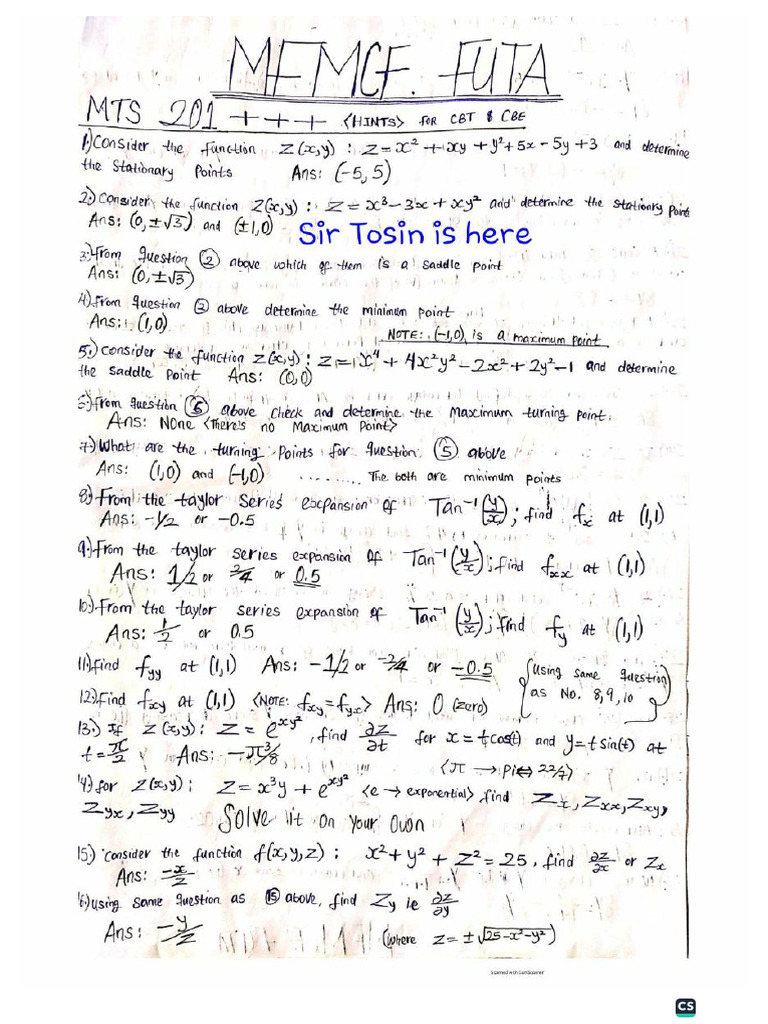 MFMCF. FUTA
MTS 201 +++ <HINTS> FOR CBT & CBE
1.) Consider the function Z(x,y) : Z = x² + xy + y² + 5x - 5y + 3 and determine
the Stationary Points Ans: (-5, 5)
2.) Consider the function Z(x,y) : Z = x³ - 3x + xy² and determine the stationary Point
Ans: (0, ±√3) and (±1, 0)
Sir Tosin is here
3.) From question ② above which of them is a saddle point
Ans: (0, ±√3)
4.) From question ② above determine the minimum point
Ans: (1, 0)
NOTE: (-1,0) is a maximum point
5.) Consider the function Z(x,y) : Z = x⁴ + 4x²y² - 2x² + 2y² - 1 and determine
the saddle Point Ans: (0,0)
6.) From question ⑤ above check and determine the Maximum turning point.
Ans: None <There's no Maximum Point>
7.) What are the turning Points for question ⑤ above
Ans: (1,0) and (-1,0) ......... The both are minimum points
8.) From the taylor Series expansion of Tan⁻¹(y/x); find fx at (1,1)
Ans: -1/2 or -0.5
9.) From the taylor series expansion of Tan⁻¹(y/x); find fxx at (1,1)
Ans: 1/2 or 2/4 or 0.5
10.) From the taylor series expansion of Tan⁻¹(y/x); find fy at (1,1)
Ans: 1/2 or 0.5
11.) Find fyy at (1,1) Ans: -1/2 or -2/4 or -0.5 {using same question
12.) Find fxy at (1,1) <NOTE: fxy = fyx> Ans: 0 (zero) as No. 8,9,10}
13.) If Z(x,y) : Z = e^xy², find ∂z/∂t for x = t cos(t) and y = t sin(t) at
t = π/2 Ans: -π³/8 <π → Pi ⇔ 22/7>
14.) for Z(x,y) : Z = x³y + e^xy² <e → exponential> find Zx, Zxx, Zxy,
Zyx, Zyy Solve it on your own
15.) Consider the function f(x,y,z) : x² + y² + z² = 25, find ∂z/∂x or Zx
Ans: -x/z
16.) using same question as ⑮ above, find Zy ie ∂z/∂y
Ans: -y/z (where z = ±√25-x²-y²)
Scanned with CamScanner
CS